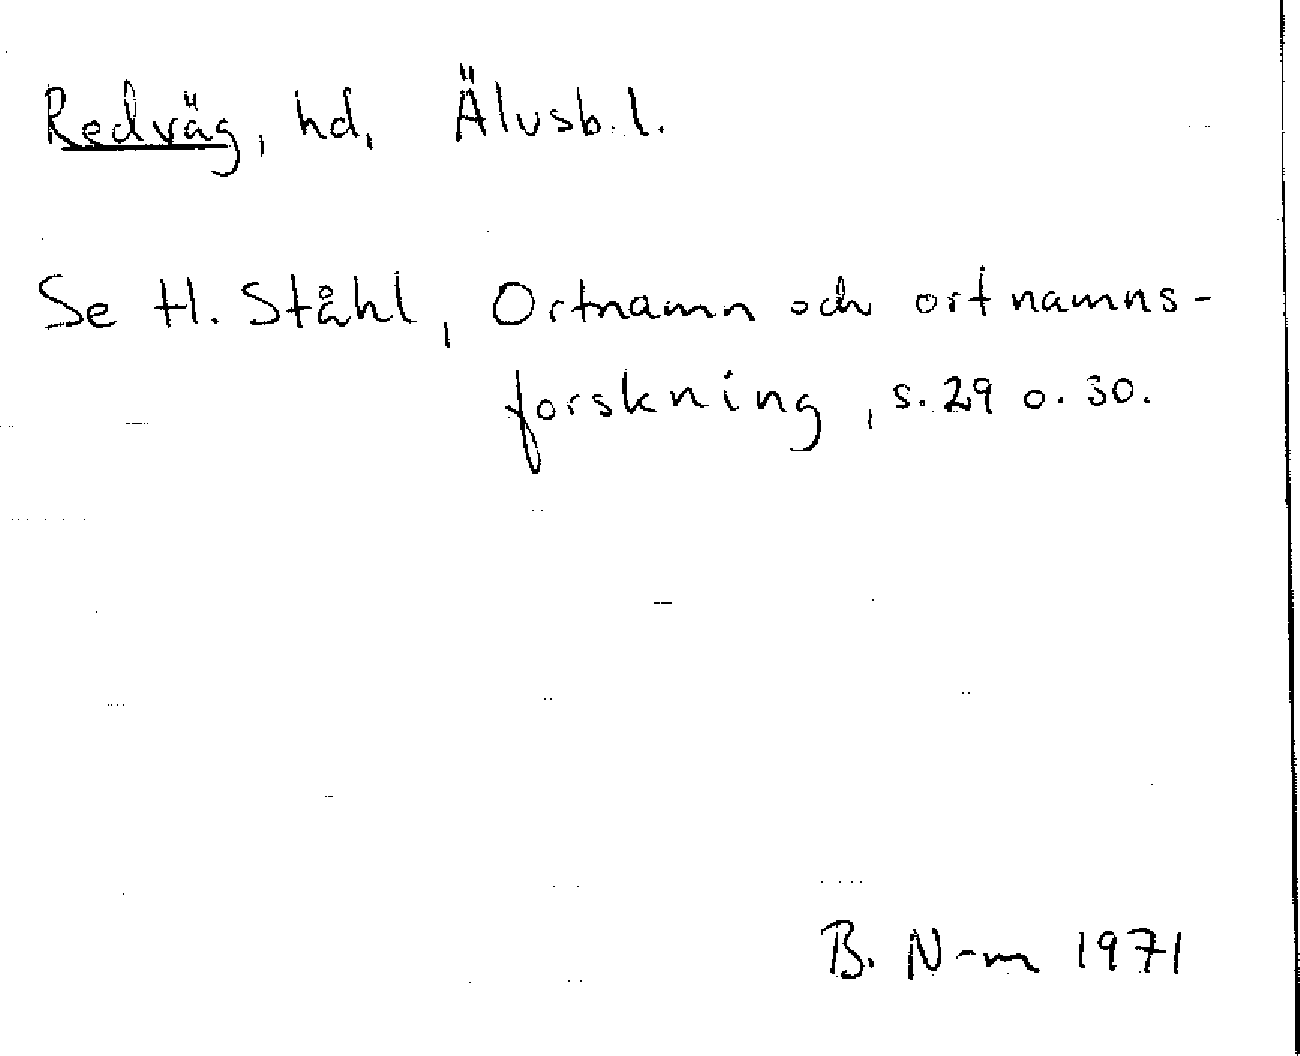 Redväg, hd, Älvsb. l.
Se H. Ståhl, Ortnamn och ortnamns-
forskning, s. 29 o. 30.
B. N-m 1971